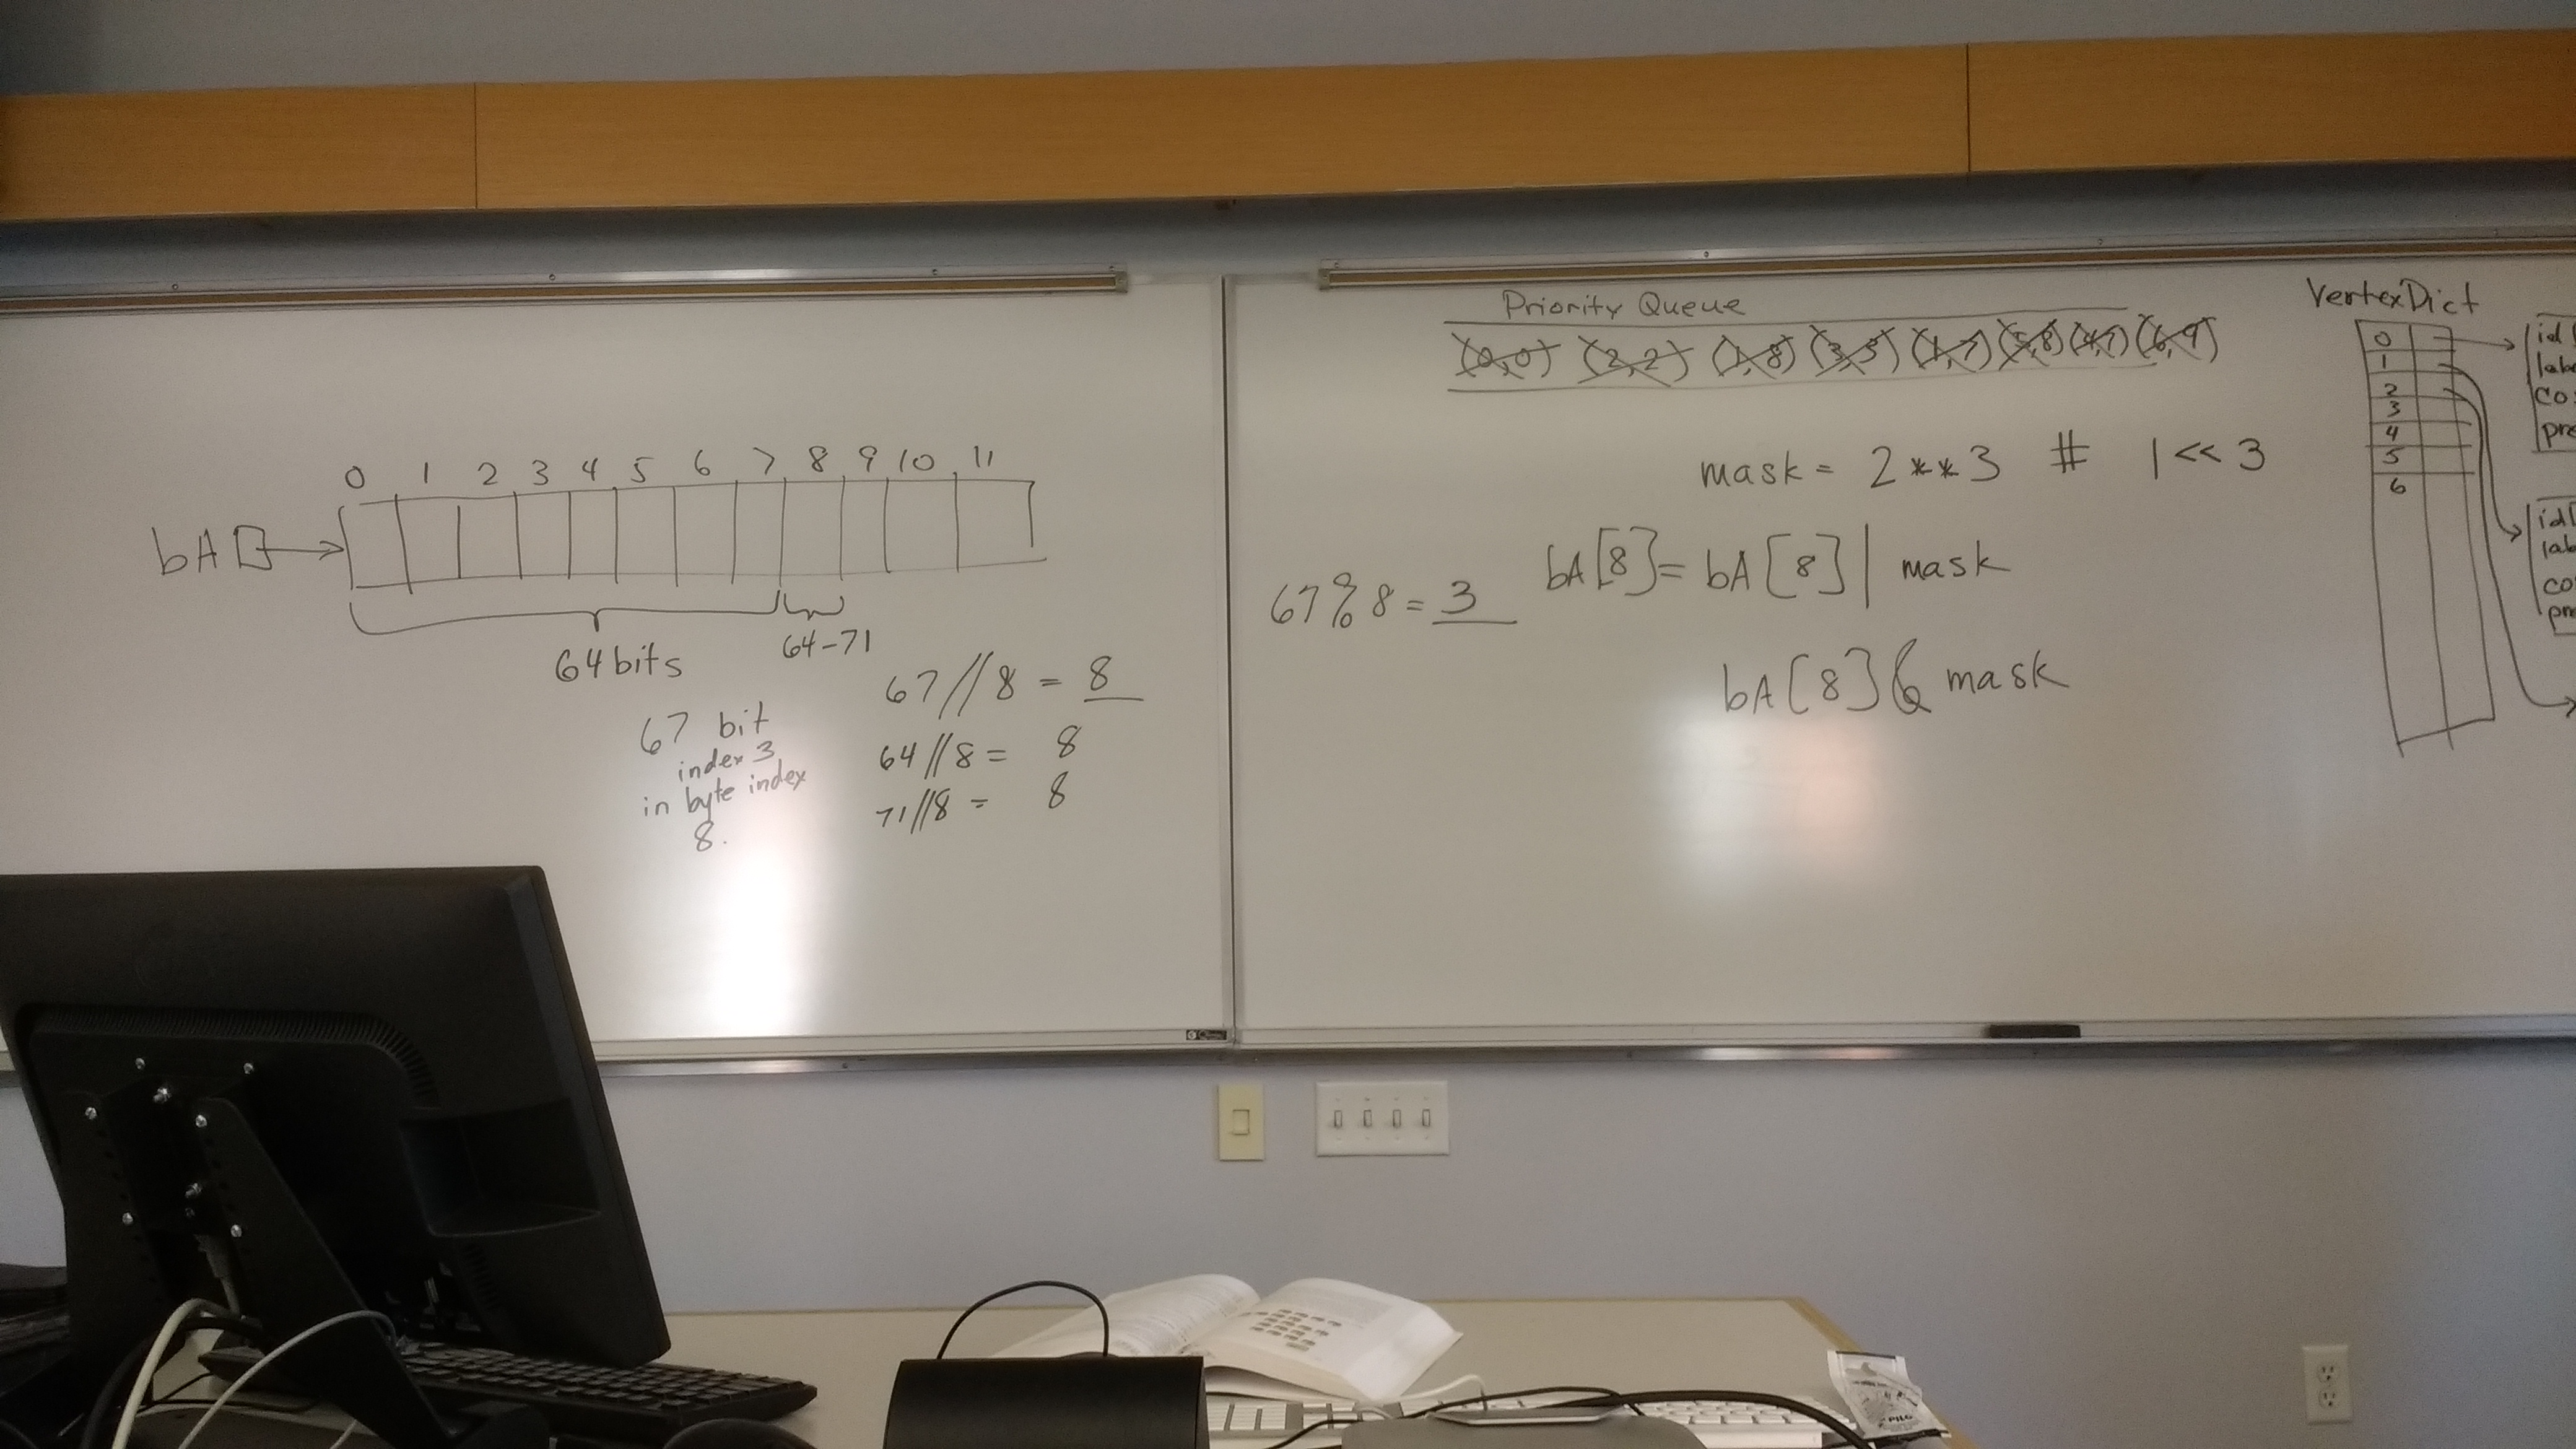 0 1 2 3 4 5 6 7 8 9 10 11
bA
64 bits
64-71
67 bit
index 3
in byte index
8.
67//8 = 8
64//8 = 8
71//8 = 8
Priority Queue
(0,0) (2,2)
mask = 2**3 # 1<<3
67%8 = 3
bA[8]= bA[8] | mask
bA[8] & mask
VertexDict
0
1
2
3
4
5
6
id
pre
id
PILOT